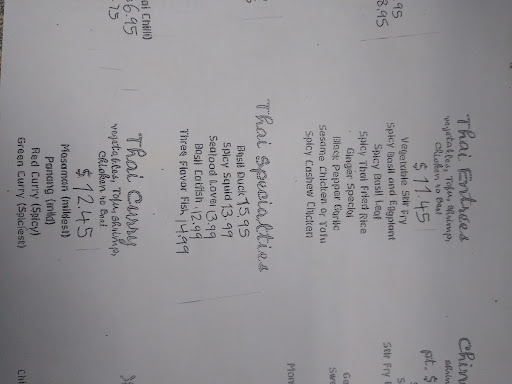 95
8.95
ai Chilli)
6.95
.75
Thai Entrees
vegetables Tofu, shrimp,
chicken or Beef
$ 11.45
Vegetable Stir Fry
Spicy Basil and Eggplant
Spicy Basil Leaf
Spicy Thai Fried Rice
Ginger Special
Black Pepper Garlic
Sesame Chicken or Tofu
Spicy Cashew Chicken
Thai Specialties
Basil Duck 15.95
Spicy Squid 13.99
Seafood Lover 13.99
Basil Catfish 12.99
Three Flavor Fish 14.99
Thai Curry
vegetables Tofu, shrimp,
chicken or Beef
$ 12.45
Masaman (mildest)
Panang (mild)
Red Curry (Spicy)
Green Curry (Spiciest)
Chin
pt. $
Stir Fry
Swe
Mon
Chi